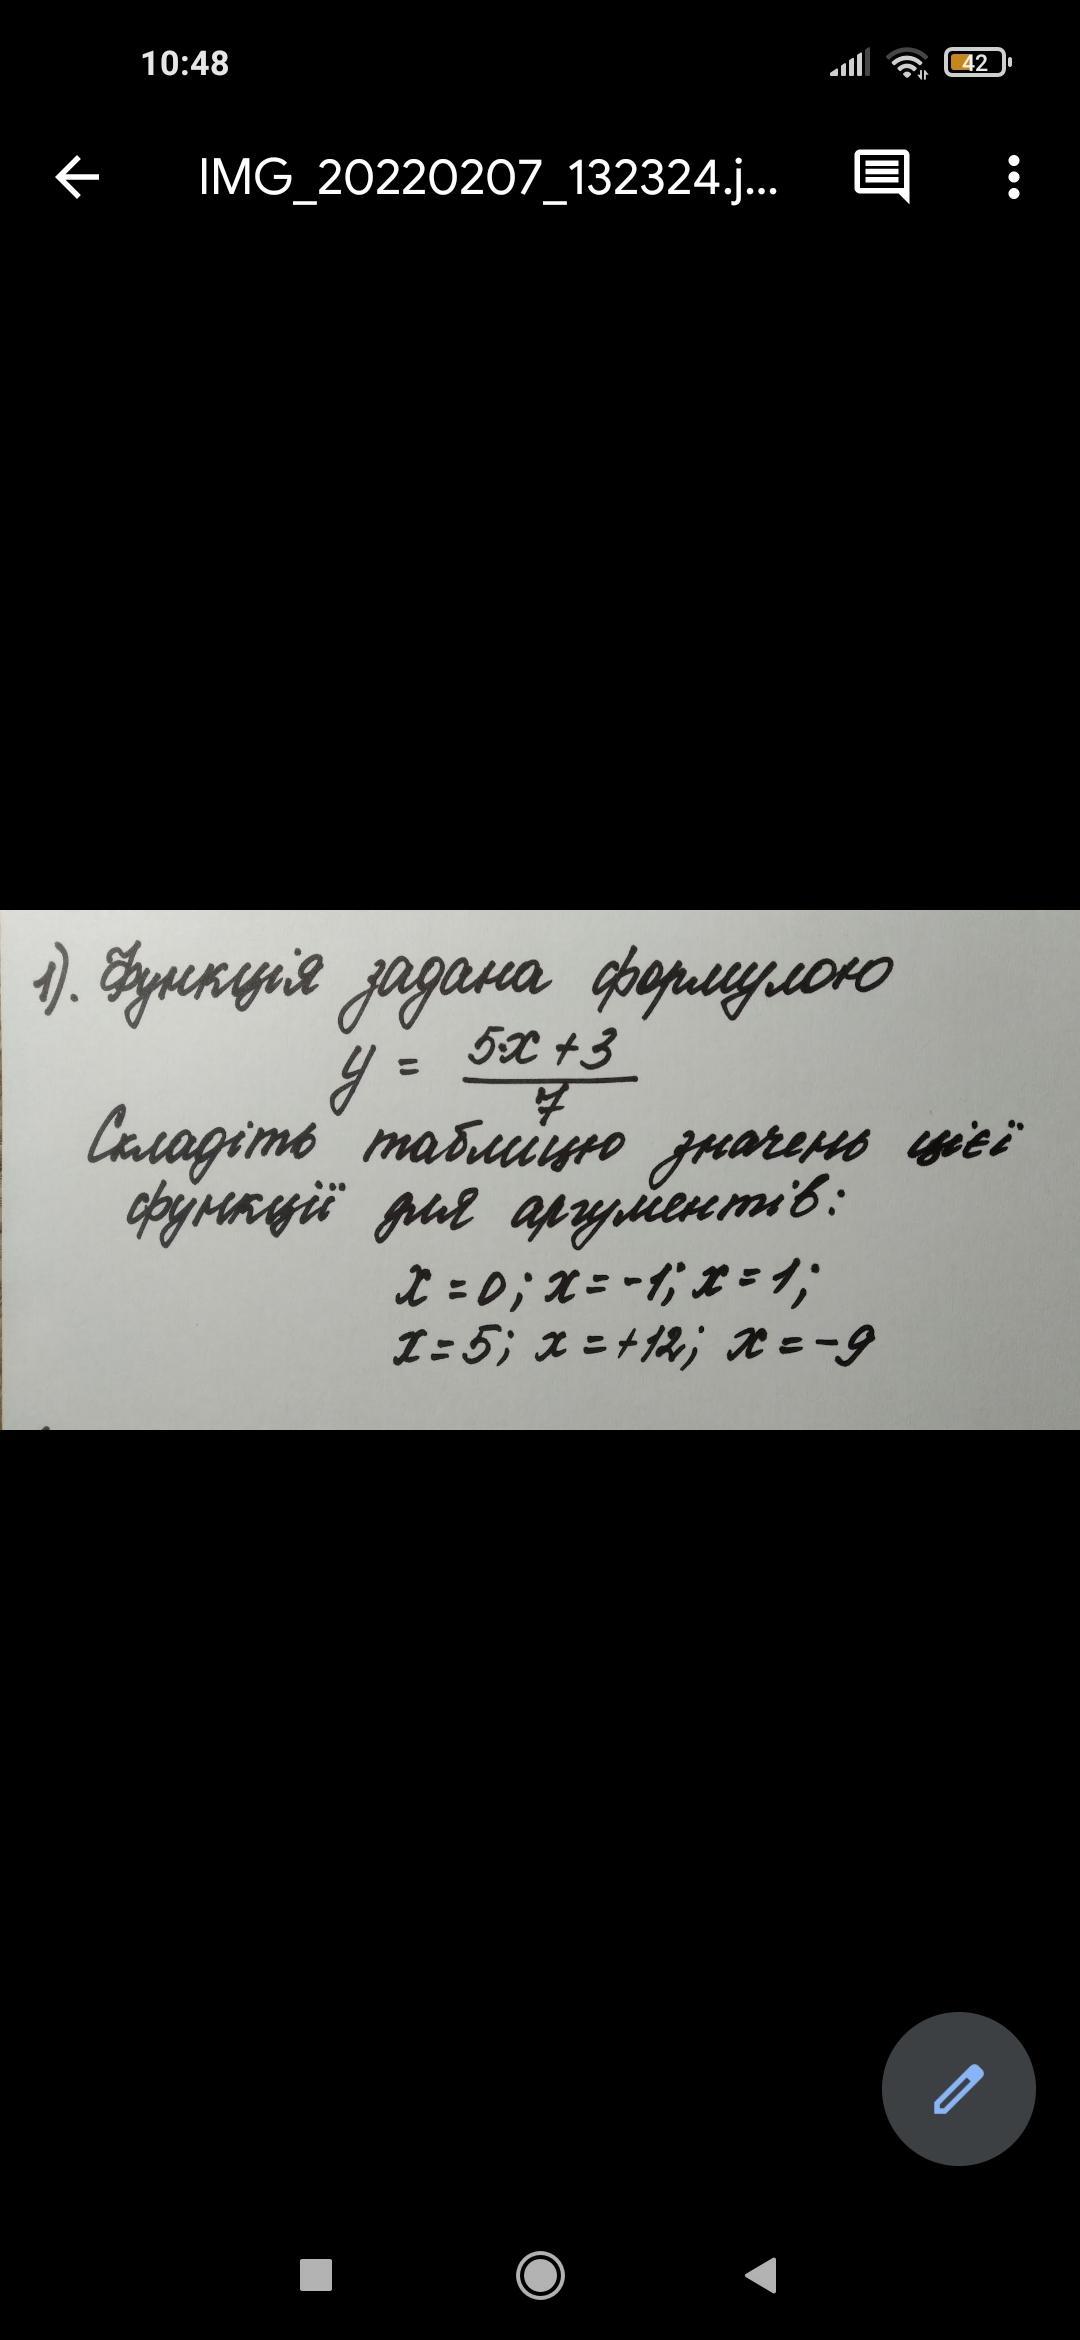 10:48
42
IMG_20220207_132324.j...
1). Функція задана формулою
y = 5·x + 3
7
Складіть таблицю значень цієї
функції для аргументів:
x = 0; x = -1; x = 1;
x = 5; x = +12; x = -9